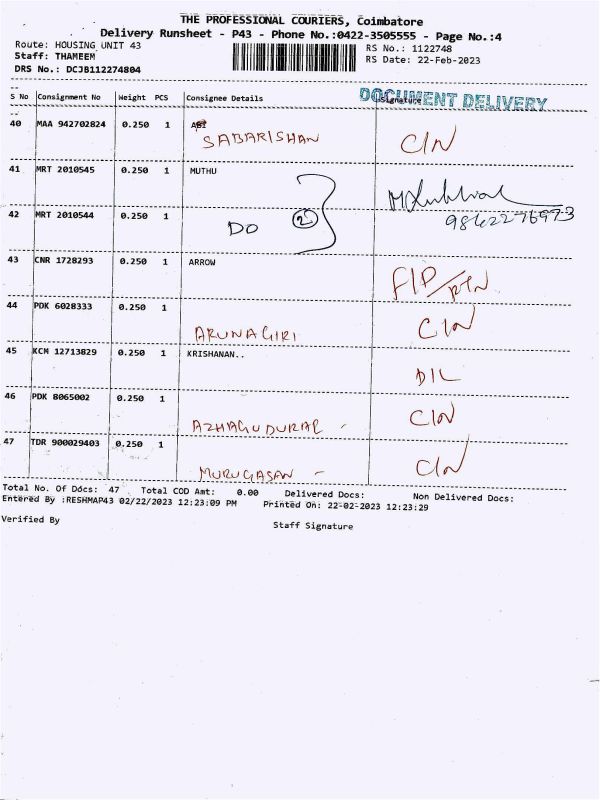 THE PROFESSIONAL COURIERS, Coimbatore
Delivery Runsheet - P43 - Phone No.:0422-3505555 - Page No.:4
Route: HOUSING UNIT 43 RS No.: 1122748
Staff: THAMEEM RS Date: 22-Feb-2023
DRS No.: DCJB112274804
DOCUMENT DELIVERY
S No Consignment No Weight PCS Consignee Details Signature
40 MAA 942702824 0.250 1
SABARISHAN C/N
41 MRT 2010545 0.250 1 MUTHU
42 MRT 2010544 0.250 1 DO 2 9842276973
43 CNR 1728293 0.250 1 ARROW
44 PDK 6028333 0.250 1
ARUNAGIRI C/N
45 KCM 12713829 0.250 1 KRISHANAN..
D/L
46 PDK 8065002 0.250 1
AZHAGUDURAI - C/N
47 TDR 900029403 0.250 1
MURUGASAN - C/N
Total No. Of Docs: 47 Total COD Amt: 0.00 Delivered Docs: Non Delivered Docs:
Entered By :RESHMAP43 02/22/2023 12:23:09 PM Printed On: 22-02-2023 12:23:29
Verified By Staff Signature